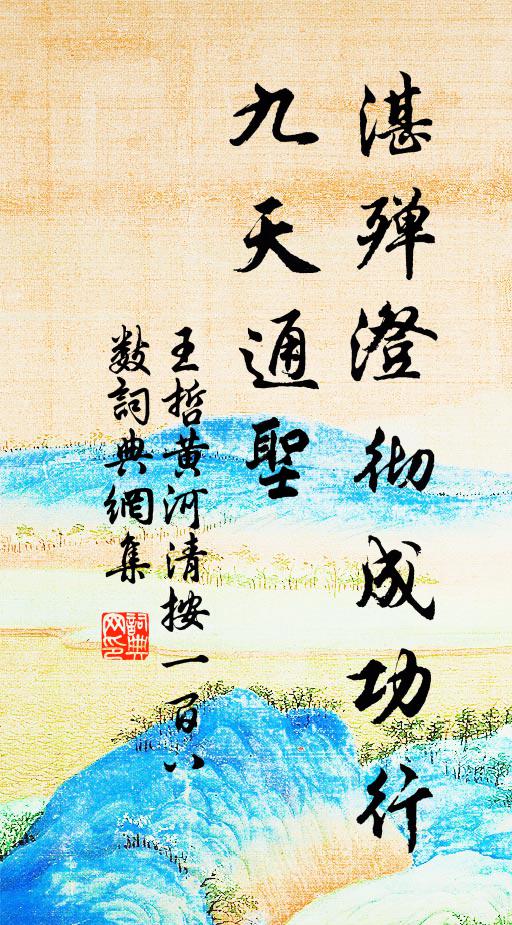 湛殫澄彻成功行
九天通聖
王哲黄河清按一百八
數詞典網集
詞典网印